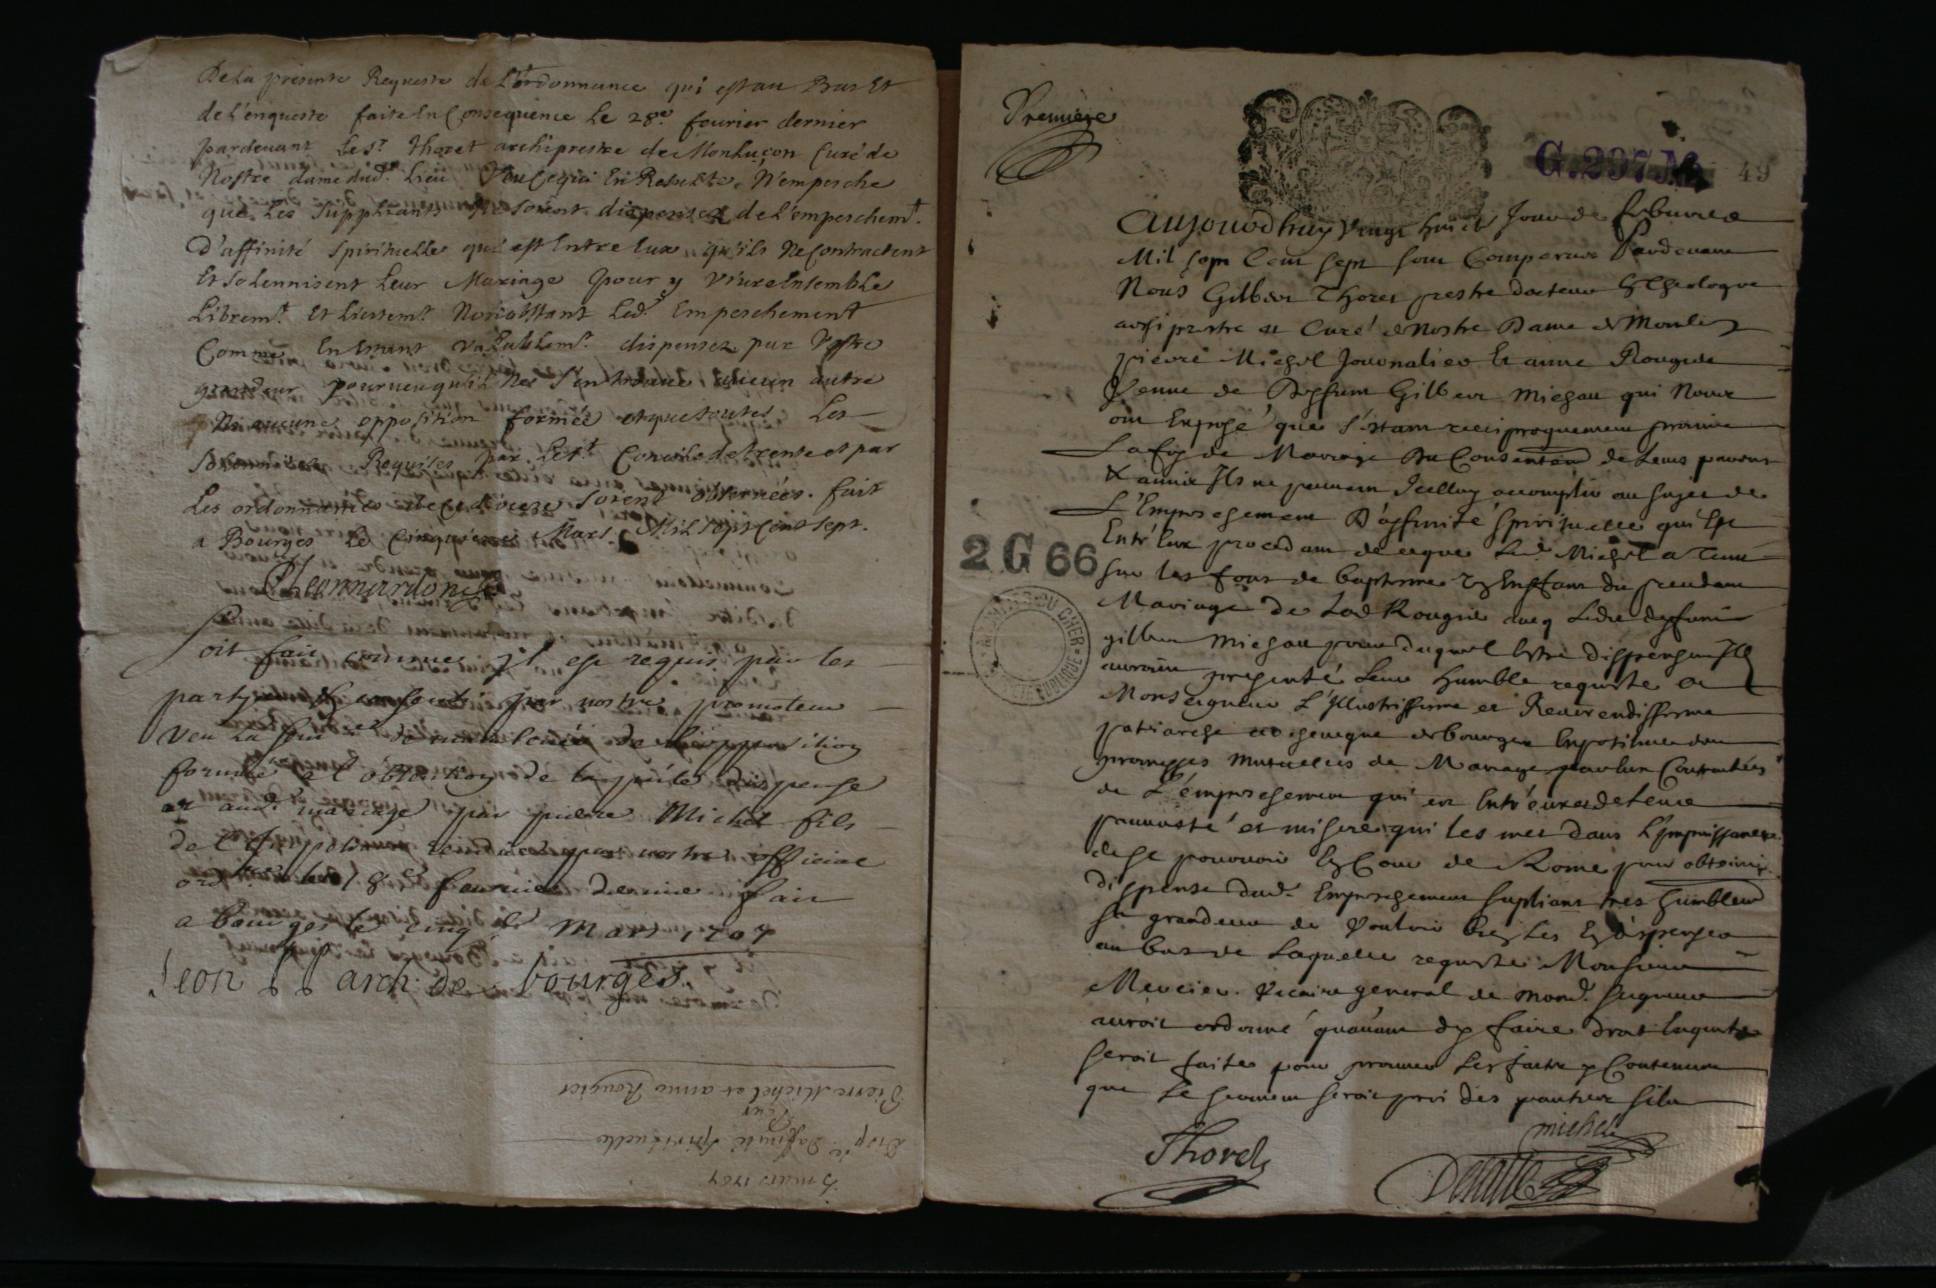 De la presente Requeste de L'ordonnance qui est au Bas Et
de L'enqueste faite En Consequence Le 28e fevrier dernier
pardevant Le Sr. Thoret archiprestre de Monluçon Curé de
Nostre dame dud. Lieu Veu Ce qui En Resulte, N'empesche
que Les Suppliants Ne Soient dispensez de L'empeschemt.
D'affinité Spirituelle qui est Entre Eux qu'ils Ne Contractent
Et Solennisent Leur Mariage pour y Vivre Ensemble
Libremt. Et Licitemt. Nonobstant Led. Empeschement
Comme En Estant Valablemt. dispensez par Vostre
grandeur pourveu qu'il Ne S'en trouve aucun autre
Ni aucune opposition formée et que toutes Les
Solemnitez Requises par Le St. Concile de trente et par
Les ordonnances de Ce dioceze Soient observées. fait
a Bourges Le Cinquieme Mars Mil Sept Cent Sept.
Soit fait comme il est requis par les
parties et consenti par nostre promoteur
Veu La de de L'opposition
formée a l'obtention de la dispense
et aud. mariage par pierre Michel fils
de rendue par nostre official
le 18e fevrier dernier fait
a bourges le cinqe Mars 1707
Leon P P arch. de bourges.
Pierre Michel et anne Rougier
Veuve
Disp. Daffinité Spirituelle
5 mars 1707
Premiere
G.297
49
Aujourdhuy Vingt huict Jour de febvrier
Mil Sept Cent Sept Sont Comparus Pardevant
Nous Gilbert Thoret prestre docteur En Theologie
archiprestre et Curé de Nostre Dame de Montlu
pierre Michel Journalier Et anne Rougier
Veuve de Deffunt Gilbert Michau qui Nous
ont Exposé que S'estant reciproquement promis
La foy de Mariage Du Consentemt de Leurs parents
& amis Ils ne peuvent Icelluy accomplir au Sujet de
L'Empeschement D'affinité Spirituelle qui Est
Entr'Eux procedant de ce que Led Michel a Tenu
Sur Les fons de baptesme Un Enffant du pendant
Mariage de Lad Rougier avec Ledit deffunt
gilbert Michau pour duquel Estre Dispensez Ils
auroient presenté Leur humble requeste a
Monseigneur L'Illustrissime et Reverendissime
patriarche archevesque de bourges Expositive des
promesses Mutuelles de Mariage par Eux Contractées
de L'empeschement qui est Entr'eux et de Leur
pauvreté et misere qui les met dans L'Impuissance
de Se pourvoir En Cour de Rome pour obtenir
Dispense dud. Empeschement Supliant tres humblemt
Sa grandeur de Vouloir bien Les En dispenser
au bas de Laquelle requeste Monsieur
Mercier. Vicaire general de mond. Seigneur
auroit ordonné quavant dy faire droit Enqueste
Seroit faite pour prouver Les faits y Contenus
que Le Serment Seroit pris des parties Sils
2 G 66
ARCHIVES DU CHER
Thoret
michel